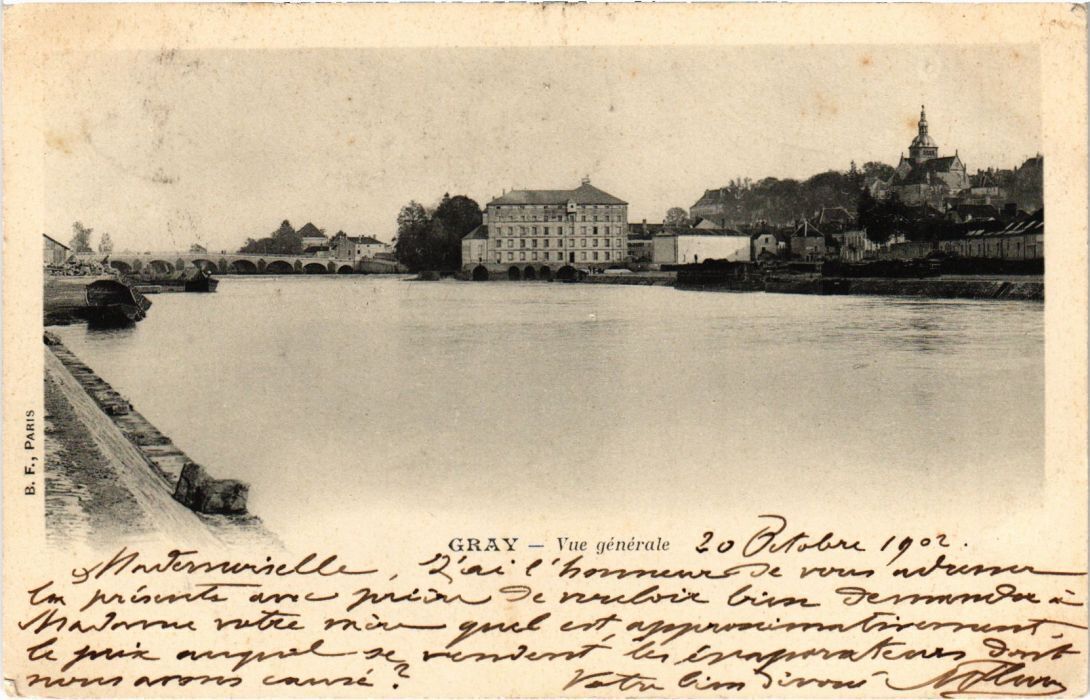 B. F., PARIS
GRAY – Vue générale 20 Octobre 1902.
Mademoiselle, J'ai l'honneur de vous adresser
la présente avec prière de vouloir bien demander à
Madame votre mère quel est, approximativement,
le prix auquel se vendent les évaporateurs dont
nous avons causé? Votre bien dévoué